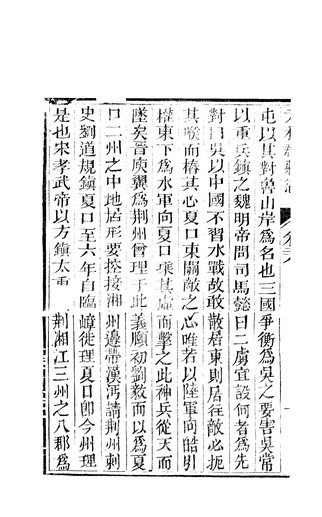 屯以其對魯山岸爲名也三國爭衡爲吳之要害吳常
以重兵鎮之魏明帝問司馬懿曰二虜宜設何者爲先
對曰吳以中國不習水戰故敢散居東則居往敵必扼
其喉而樁其心夏口東關敵之心唯若以陸軍向皓引
權東下爲水軍向夏口乘其虛而擊之此神兵從天而
墜矣晉庾翼爲荆州曾理于此義願初劉毅而以爲夏
口二州之中地居形要控接湘州邊帶漢沔請荆州刺
史劉道規鎮夏口至六年自臨嶂徙理夏口卽今州理
是也宋孝武帝以方鎮太重荆湘江三州之八郡爲